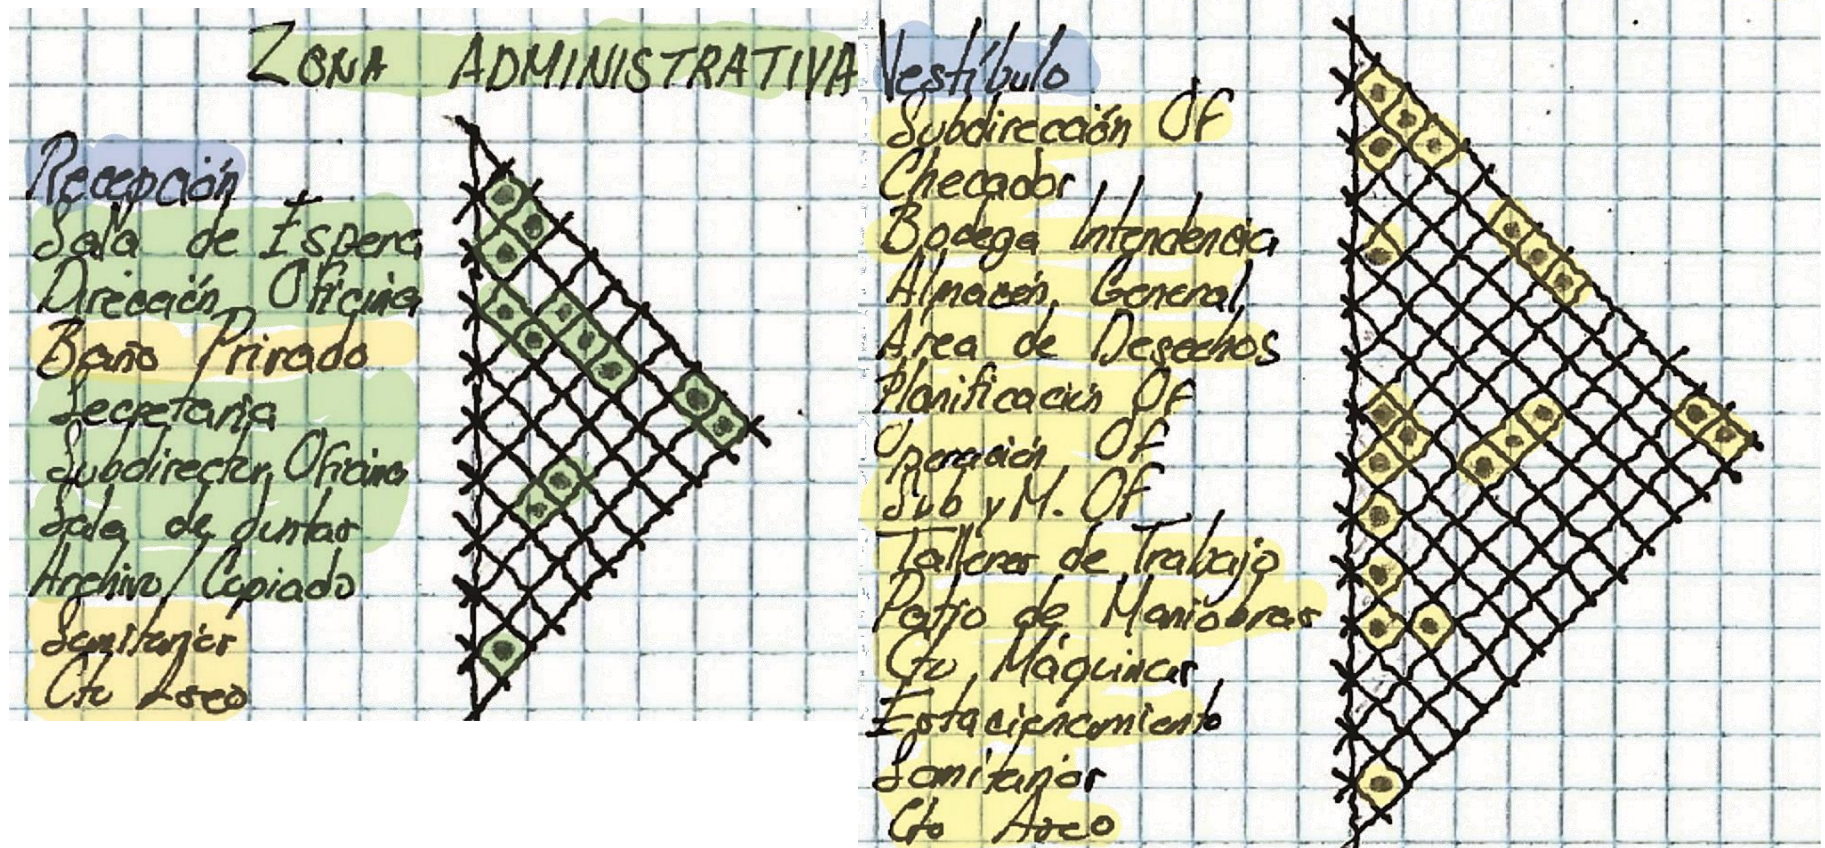 ZONA ADMINISTRATIVA
Recepción
Sala de Espera
Dirección Oficina
Baño Privado
Secretaria
Subdirector Oficina
Sala de Juntas
Archivo/Copiado
Sanitarios
Cto Aseo
Vestíbulo
Subdirección Of
Checador
Bodega Intendencia
Almacén General
Area de Desechos
Planificación Of
Operación Of
Sub y M. Of
Talleres de Trabajo
Patio de Maniobras
Cto Máquinas
Estacionamiento
Sanitarios
Cto Aseo